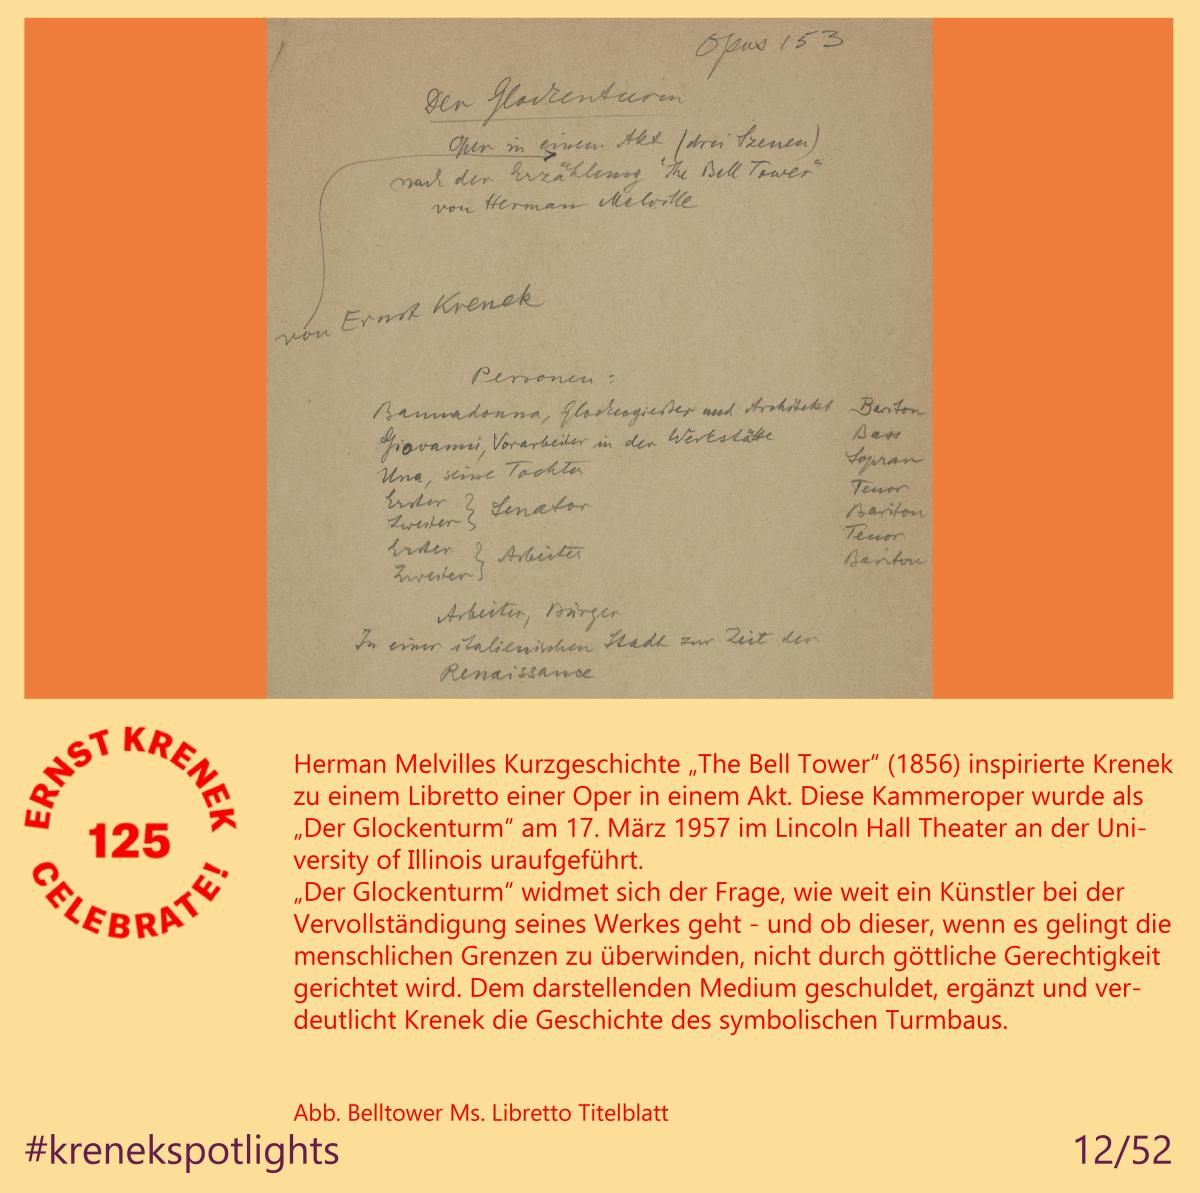 Opus 153
Der Glockenturm
Oper in einem Akt (drei Szenen)
nach der Erzählung "The Bell Tower"
von Herman Melville
von Ernst Krenek
Personen:
Bannadonna, Glockengiesser und Architekt Bariton
Giovanni, Vorarbeiter in der Werkstätte Bass
Una, seine Tochter Sopran
Erster } Senator Tenor
Zweiter Bariton
Erster } Arbeiter Tenor
Zweiter Bariton
Arbeiter, Bürger
In einer italienischen Stadt zur Zeit der
Renaissance
ERNST KRENEK
125
CELEBRATE!
Herman Melvilles Kurzgeschichte „The Bell Tower“ (1856) inspirierte Krenek
zu einem Libretto einer Oper in einem Akt. Diese Kammeroper wurde als
„Der Glockenturm“ am 17. März 1957 im Lincoln Hall Theater an der Uni-
versity of Illinois uraufgeführt.
„Der Glockenturm“ widmet sich der Frage, wie weit ein Künstler bei der
Vervollständigung seines Werkes geht - und ob dieser, wenn es gelingt die
menschlichen Grenzen zu überwinden, nicht durch göttliche Gerechtigkeit
gerichtet wird. Dem darstellenden Medium geschuldet, ergänzt und ver-
deutlicht Krenek die Geschichte des symbolischen Turmbaus.
Abb. Belltower Ms. Libretto Titelblatt
#krenekspotlights
12/52